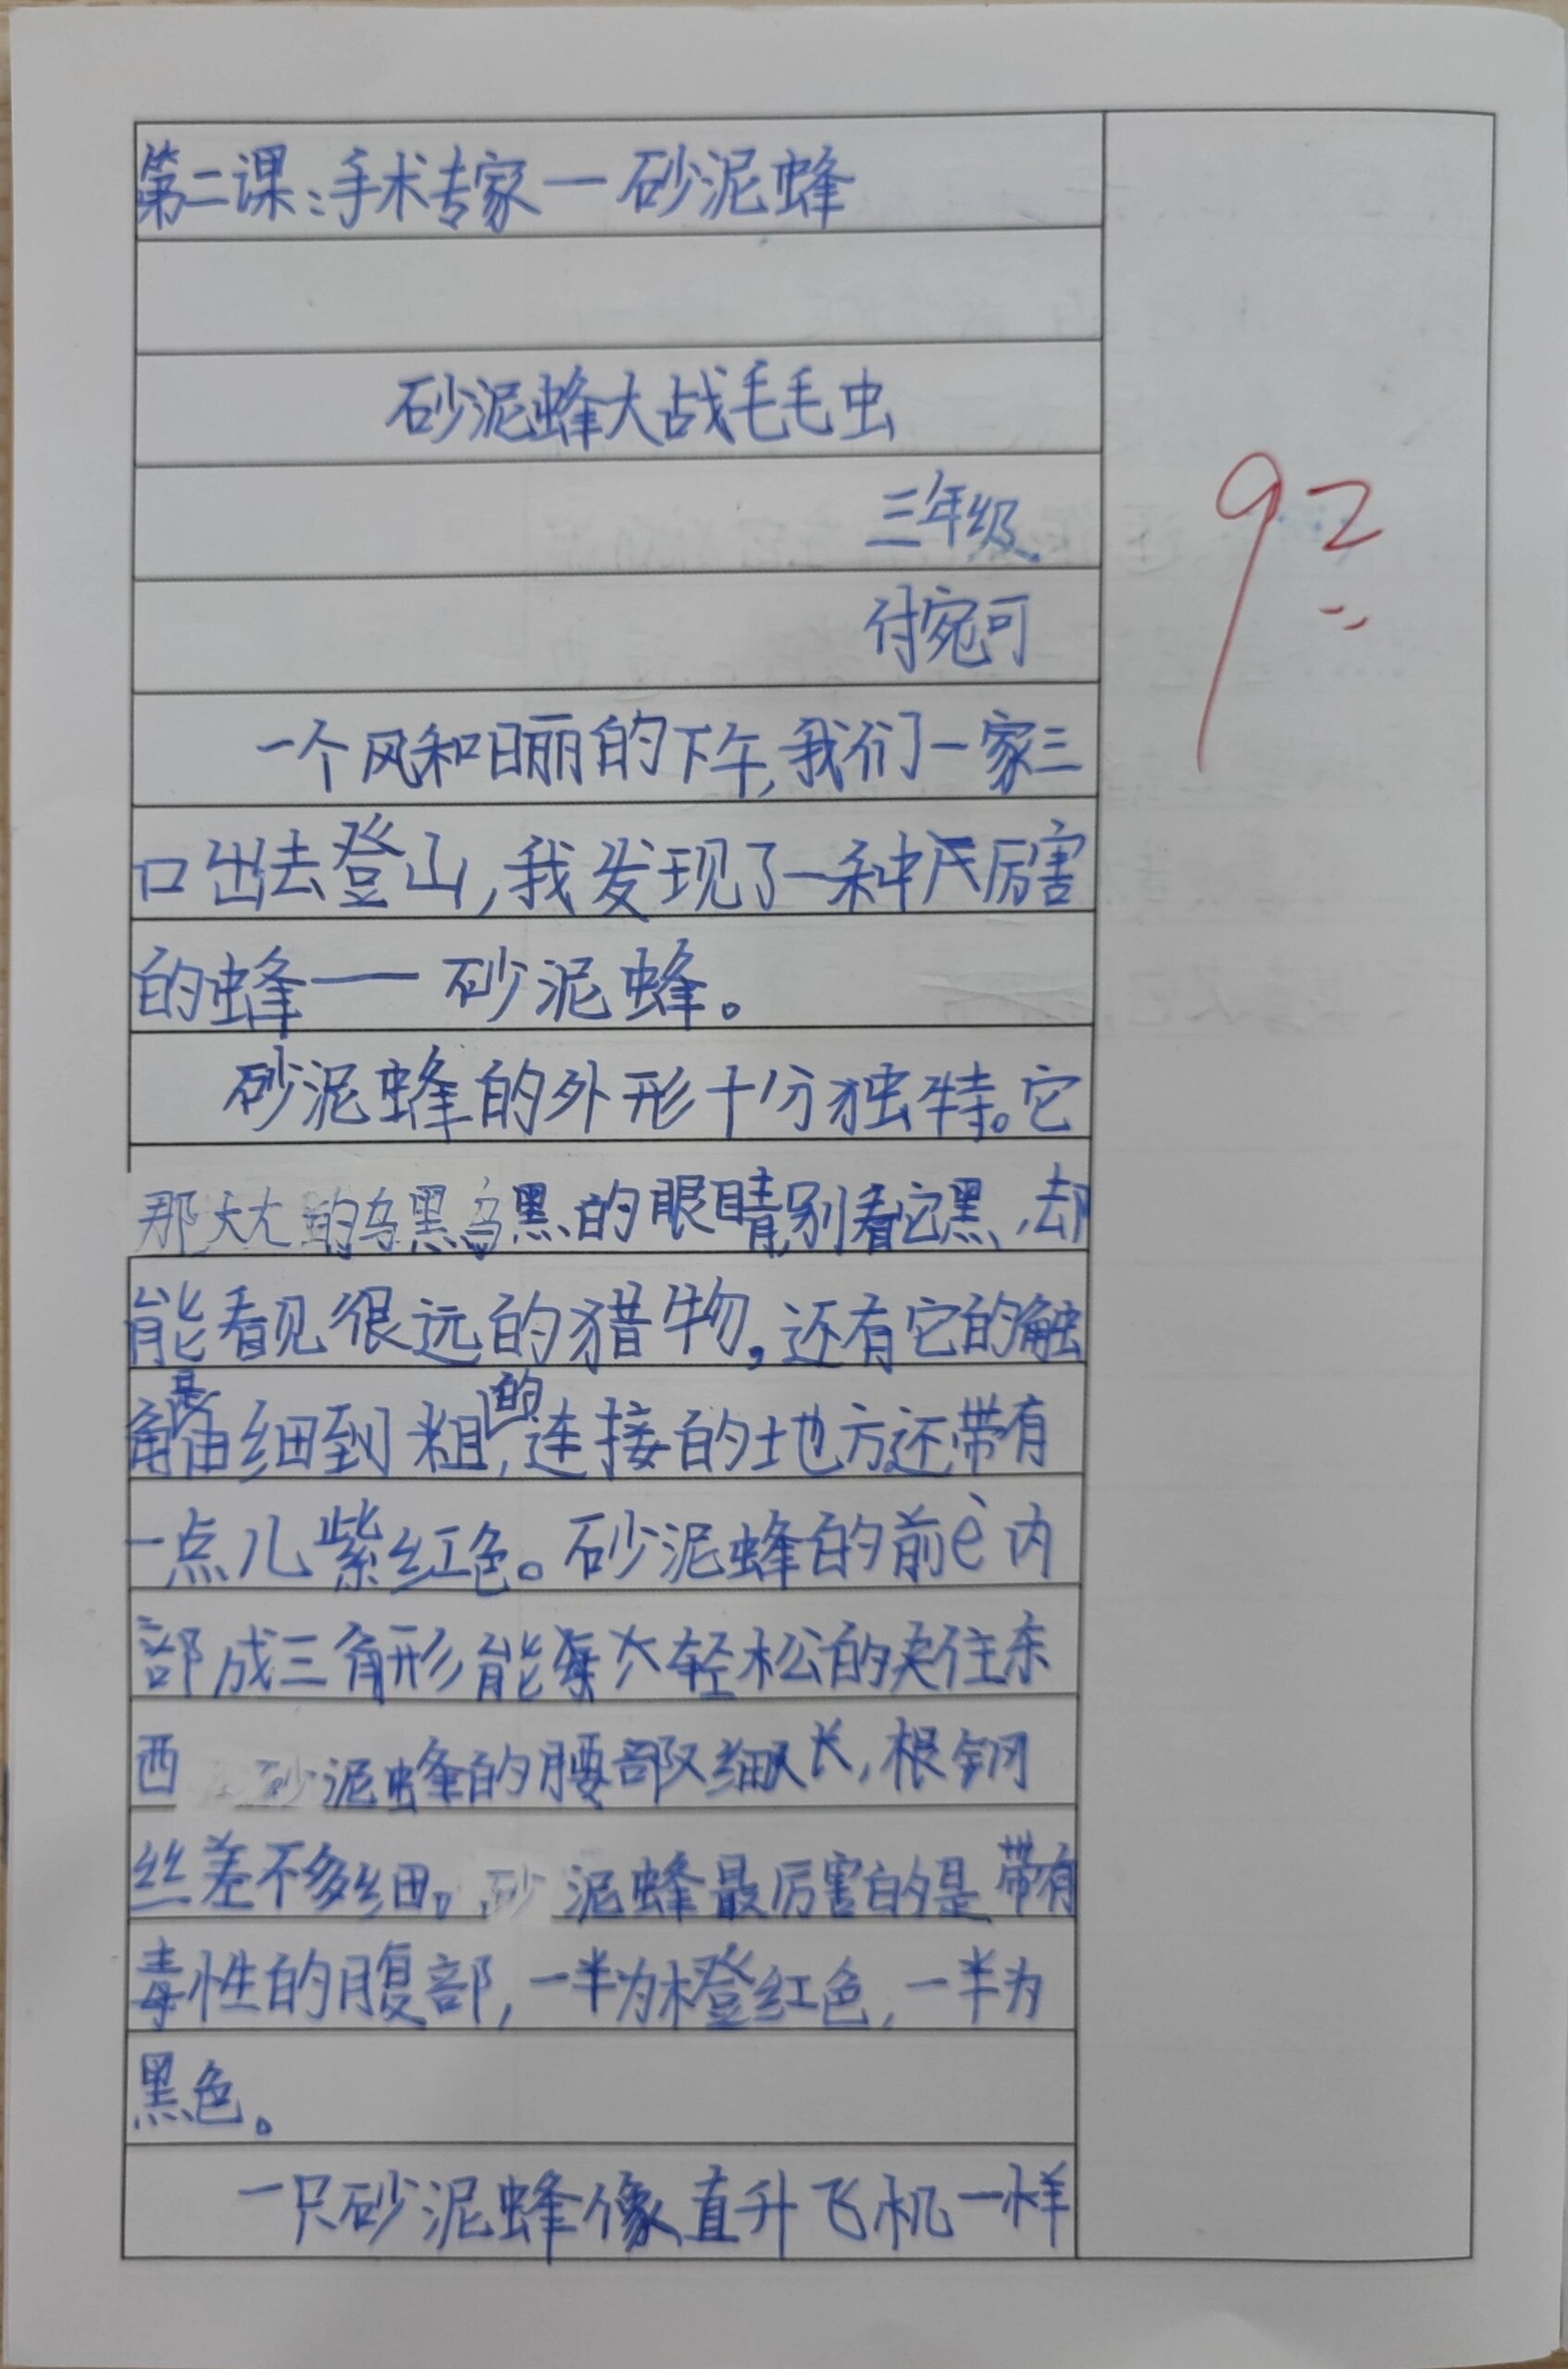 第二课:手术专家一砂泥蜂
砂泥蜂大战毛毛虫
三年级
付宛可
92
一个风和日丽的下午,我们一家三
口出去登山,我发现了一种厉害
的蜂——砂泥蜂。
砂泥蜂的外形十分独特。它
那大大的乌黑乌黑的眼睛,别看它黑,却
能看见很远的猎物,还有它的触
角是由细到粗的,连接的地方还带有
一点儿紫红色。砂泥蜂的前è内
部成三角形能轻松的夹住东
西 砂泥蜂的腰部又细又长,根钢
丝差不多细。砂泥蜂最厉害的是带有
毒性的腹部,一半为橙红色,一半为
黑色。
一只砂泥蜂像直升飞机一样